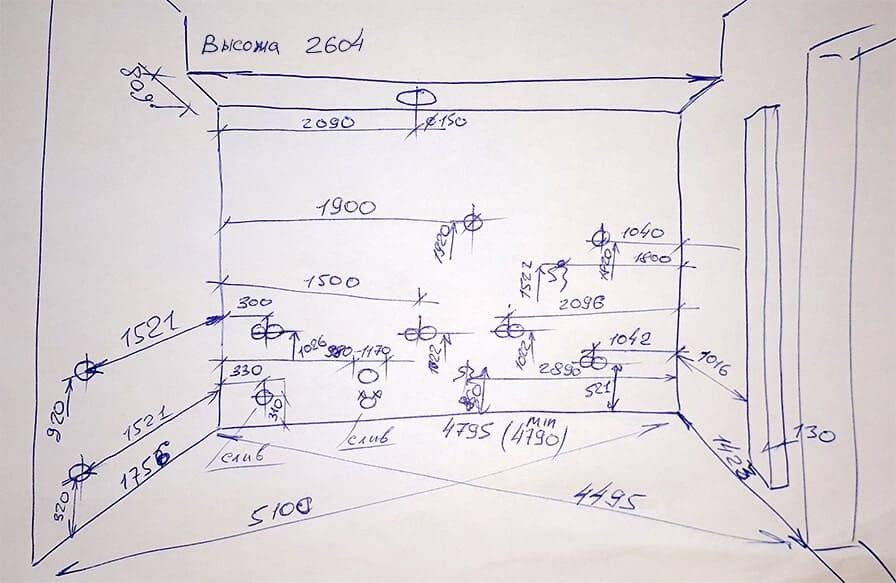 Высота 2604
608
2090
ø150
1900
1920
1040
1820
1800
1522
1500
2096
300
1521
1026
1022
1022
1042
980-1170
330
2890
521
1016
920
310
1521
4795 (4790)
min
130
слив
слив
1423
1756
320
5100
4495